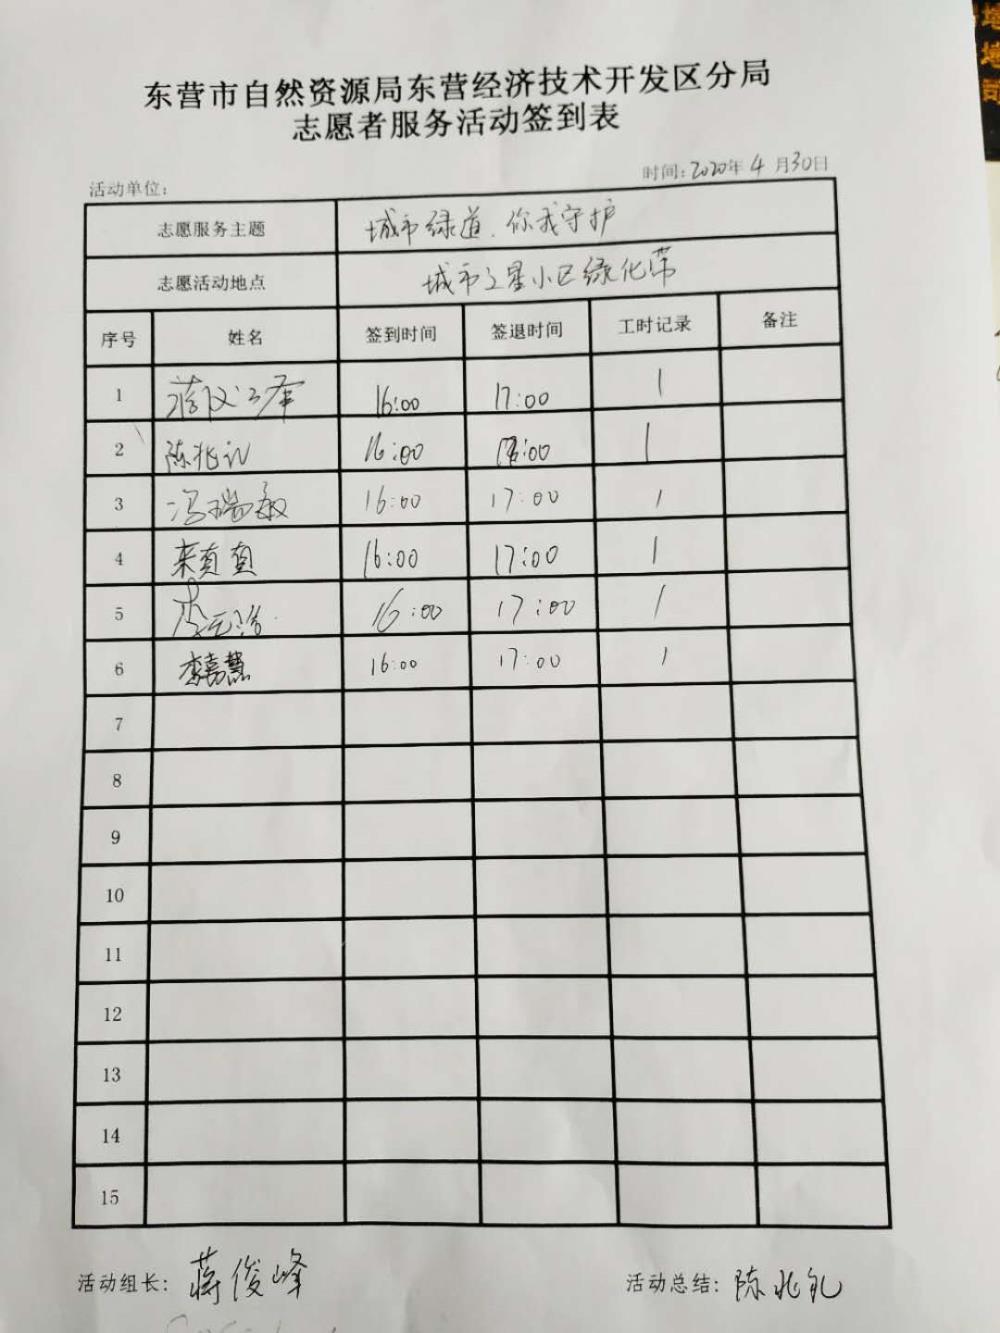 东营市自然资源局东营经济技术开发区分局
志愿者服务活动签到表
活动单位：
时间：2020年4月30日
志愿服务主题 城市绿道、你我守护
志愿活动地点 城市之星小区绿化带
序号 姓名 签到时间 签退时间 工时记录 备注
1 16:00 17:00 1
2 陈兆礼 16:00 1
3 冯瑞敏 16:00 17:00 1
4 来真真 16:00 17:00 1
5 李 16:00 17:00 1
6 李嘉慧 16:00 17:00 1
7
8
9
10
11
12
13
14
15
活动组长：蒋俊峰
活动总结：陈兆礼